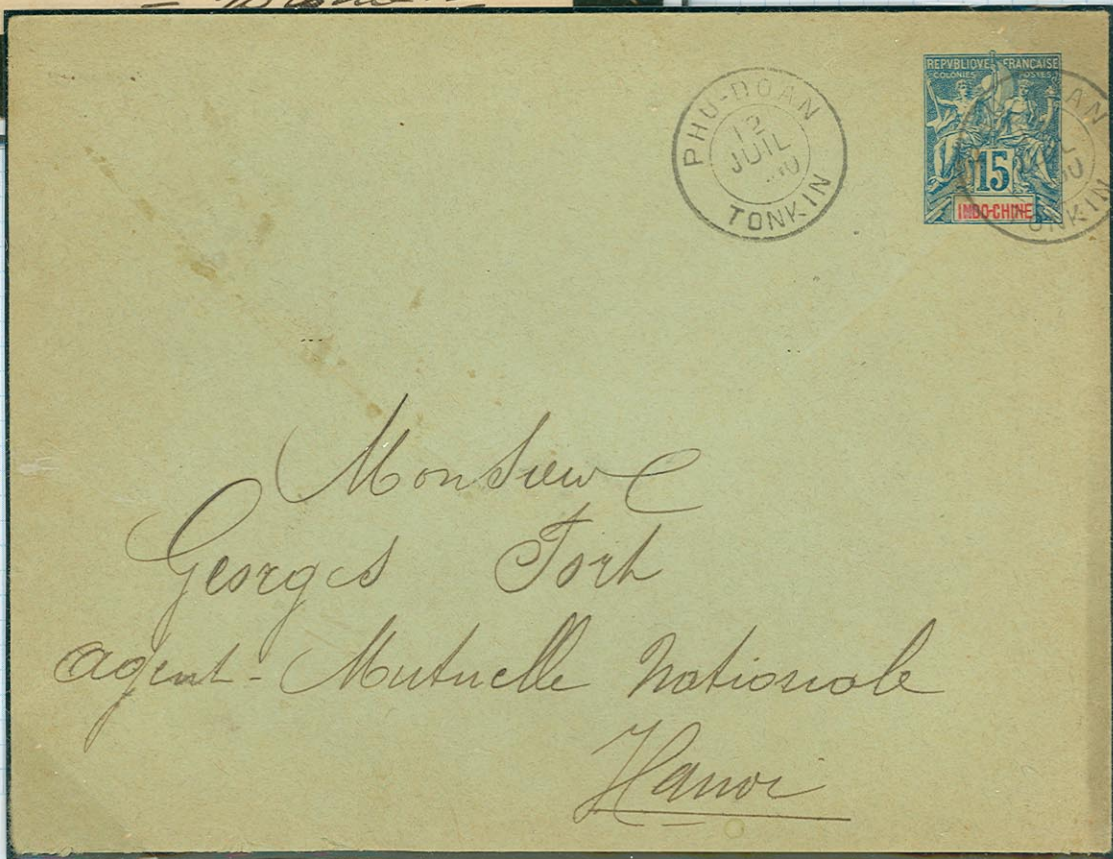 PHU-DOAN
12
JUIL
00
TONKIN
REPVBLIQVE FRANÇAISE
COLONIES POSTES
15
INDO-CHINE
Monsieur
Georges Fort
agent - Mutuelle Nationale
Hanoi